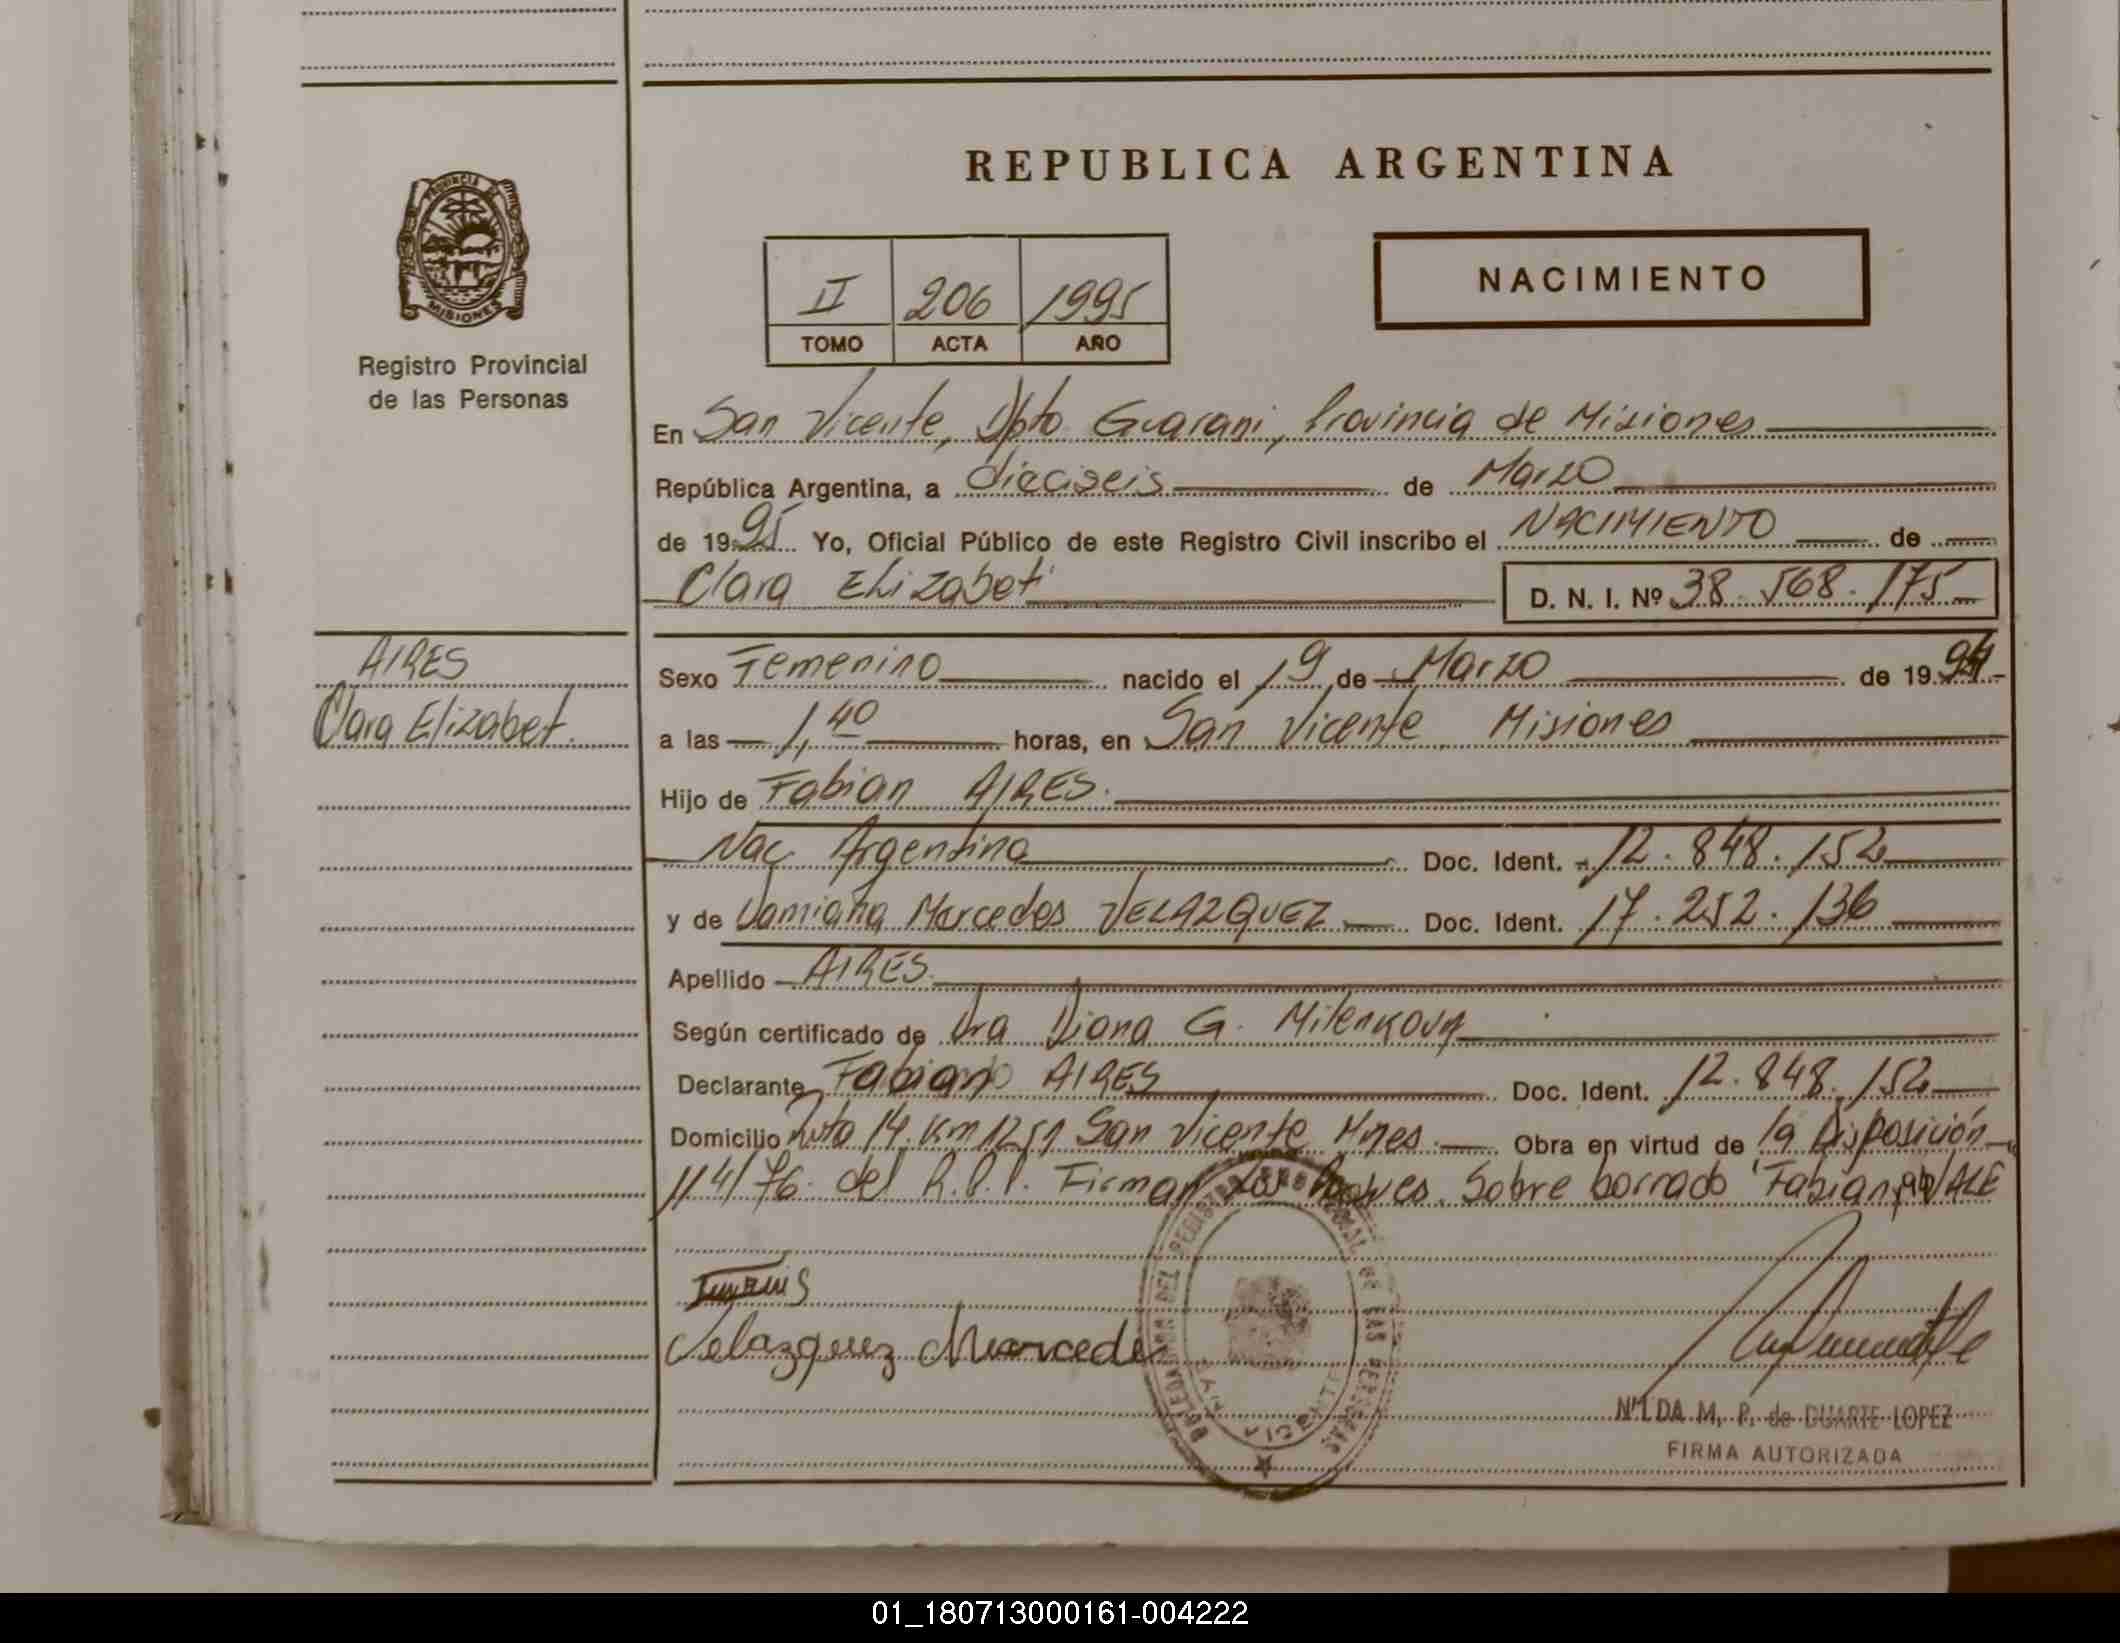 REPUBLICA ARGENTINA
PROVINCIA DE
MISIONES
Registro Provincial
de las Personas
II 206 1995
TOMO ACTA AÑO
NACIMIENTO
En San Vicente, Dpto Guarani, Provincia de Misiones
República Argentina, a dieciseis de Marzo
de 1995 Yo, Oficial Público de este Registro Civil inscribo el NACIMIENTO de
Clara Elizabet D. N. I. Nº 38.568.175
AIRES
Clara Elizabet.
Sexo Femenino nacido el 19 de Marzo de 1994
a las 1,40 horas, en San Vicente Misiones
Hijo de Fabian AIRES.
Nac Argentina Doc. Ident. 12.848.152
y de Damiana Mercedes VELAZQUEZ Doc. Ident. 17.252.136
Apellido AIRES.
Según certificado de Dra Diana G. Milenkova
Declarante Fabian AIRES Doc. Ident. 12.848.152
Domicilio Ruta 14 Km 1251 San Vicente Mnes. Obra en virtud de la Disposición
114/76 del R.P.P. Firman los Padres. Sobre borrado "Fabian, 94" VALE
Velazquez Mercede
NILDA M. P. de DUARTE LOPEZ
FIRMA AUTORIZADA
01_180713000161-004222